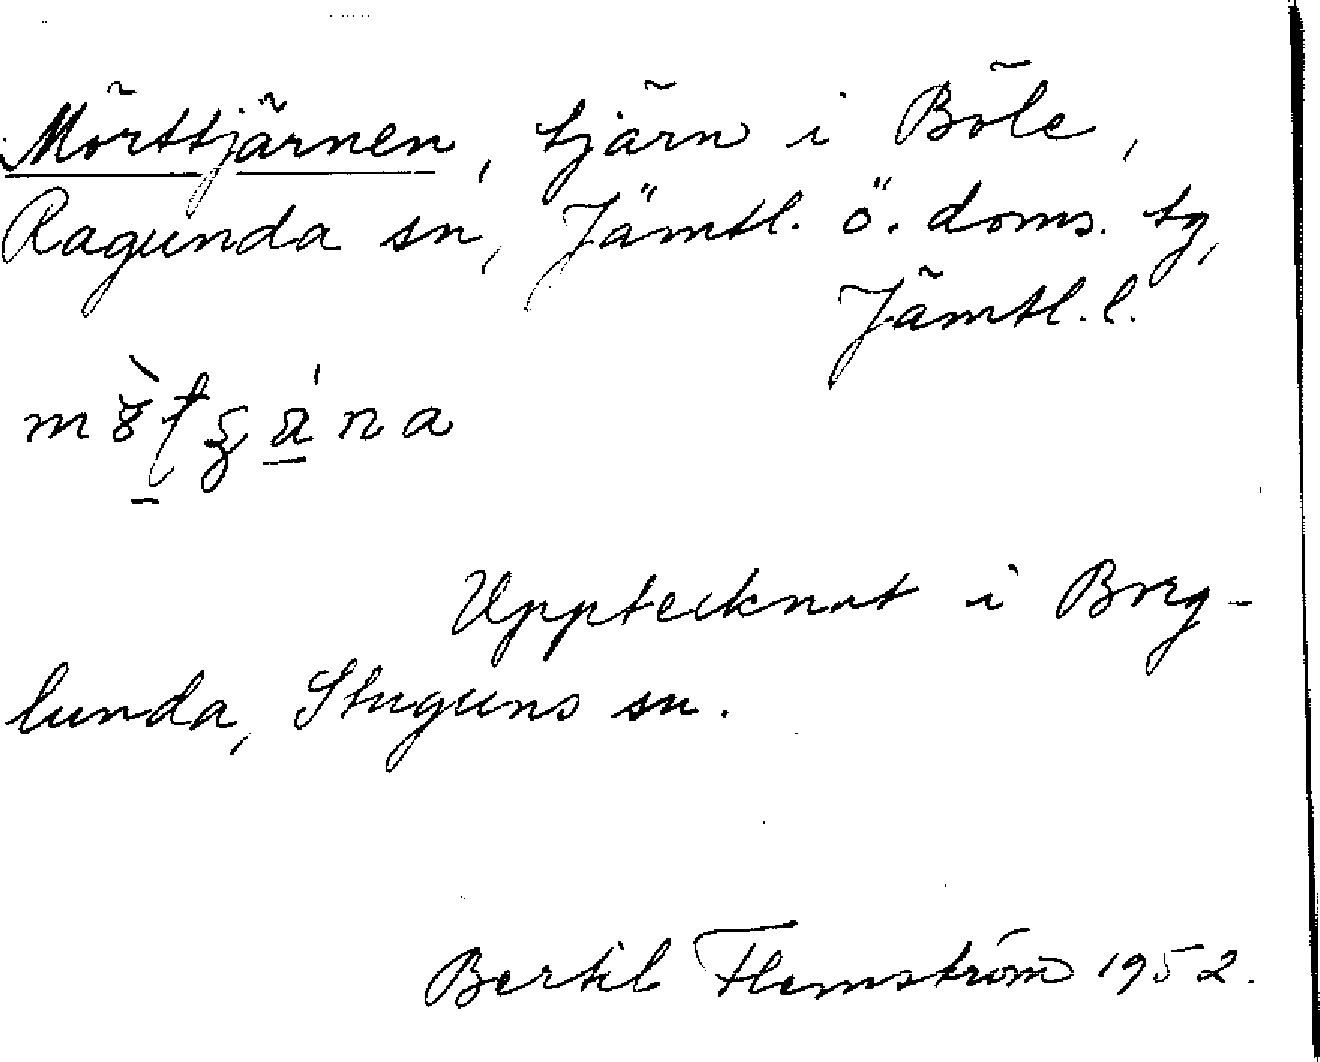 Mörttjärnen, tjärn i Böle,
Ragunda sn, Jämtl. ö. doms. tg,
Jämtl. l.
Upptecknat i Brg-
lunda, Stuguns sn.
Bertil Flemström 1952.